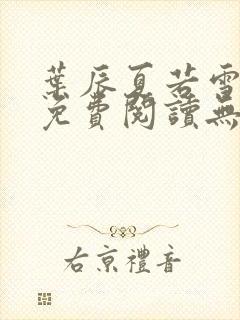 葉辰夏若雪
免費閱讀無
右京禮音